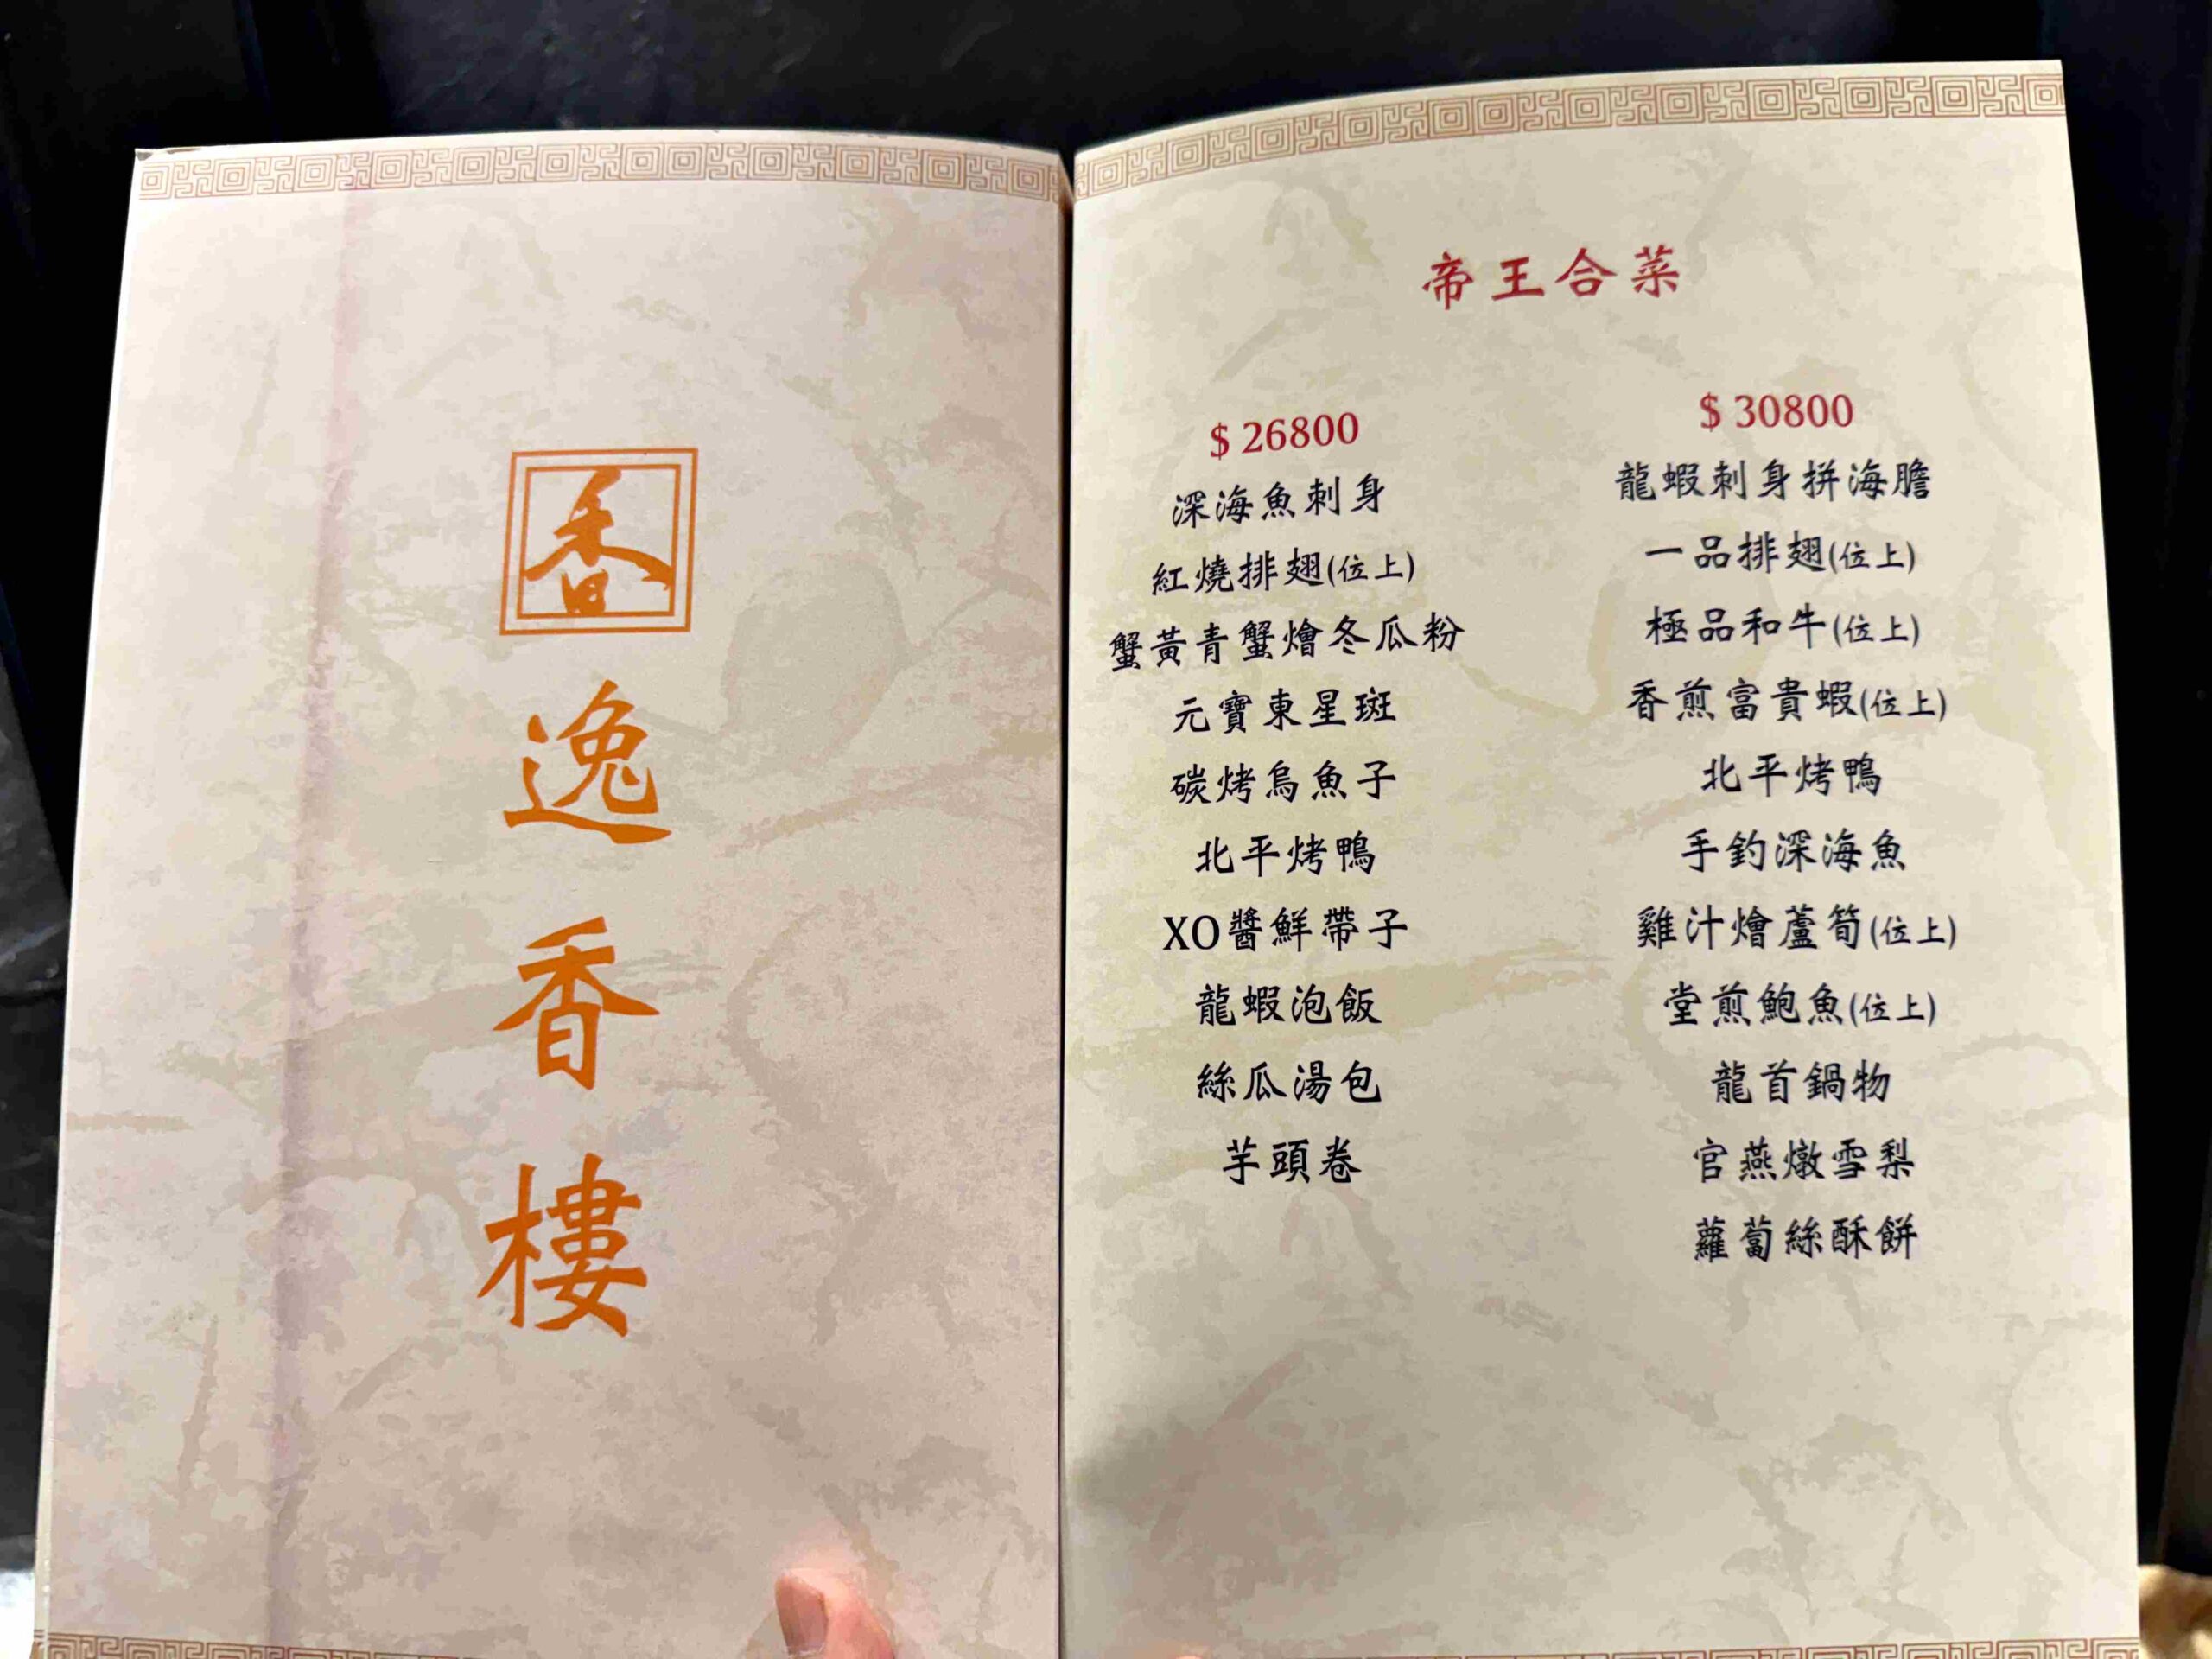 香
逸香樓
帝王合菜
$ 26800
深海魚刺身
紅燒排翅(位上)
蟹黃青蟹燴冬瓜粉
元寶東星斑
碳烤烏魚子
北平烤鴨
XO醬鮮帶子
龍蝦泡飯
絲瓜湯包
芋頭卷
$ 30800
龍蝦刺身拼海膽
一品排翅(位上)
極品和牛(位上)
香煎富貴蝦(位上)
北平烤鴨
手釣深海魚
雞汁燴蘆筍(位上)
堂煎鮑魚(位上)
龍首鍋物
官燕燉雪梨
蘿蔔絲酥餅